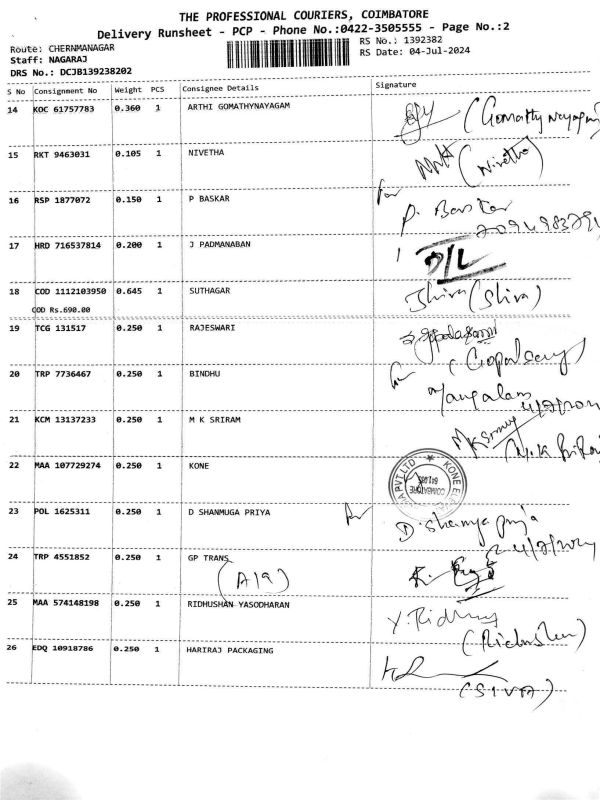 THE PROFESSIONAL COURIERS, COIMBATORE
Delivery Runsheet - PCP - Phone No.:0422-3505555 - Page No.:2
Route: CHERNMANAGAR
RS No.: 1392382
Staff: NAGARAJ
RS Date: 04-Jul-2024
DRS No.: DCJB139238202
S No Consignment No Weight PCS Consignee Details Signature
14 KOC 61757783 0.360 1 ARTHI GOMATHYNAYAGAM
(Gomathynayagam)
15 RKT 9463031 0.105 1 NIVETHA
(Nivetha)
16 RSP 1877072 0.150 1 P BASKAR
for P. Baskar
17 HRD 716537814 0.200 1 J PADMANABAN
D/L
18 COD 1112103950 0.645 1 SUTHAGAR
Shiva (Shiva)
COD Rs.690.00
19 TCG 131517 0.250 1 RAJESWARI
20 TRP 7736467 0.250 1 BINDHU
Mangalam
4/7/2024
21 KCM 13137233 0.250 1 M K SRIRAM
22 MAA 107729274 0.250 1 KONE
23 POL 1625311 0.250 1 D SHANMUGA PRIYA
D. Shanmuga priya
4/7/2024
24 TRP 4551852 0.250 1 GP TRANS
(A19)
25 MAA 574148198 0.250 1 RIDHUSHAN YASODHARAN
Y. Ridhu
26 EDQ 10918786 0.250 1 HARIRAJ PACKAGING
(SIVA)